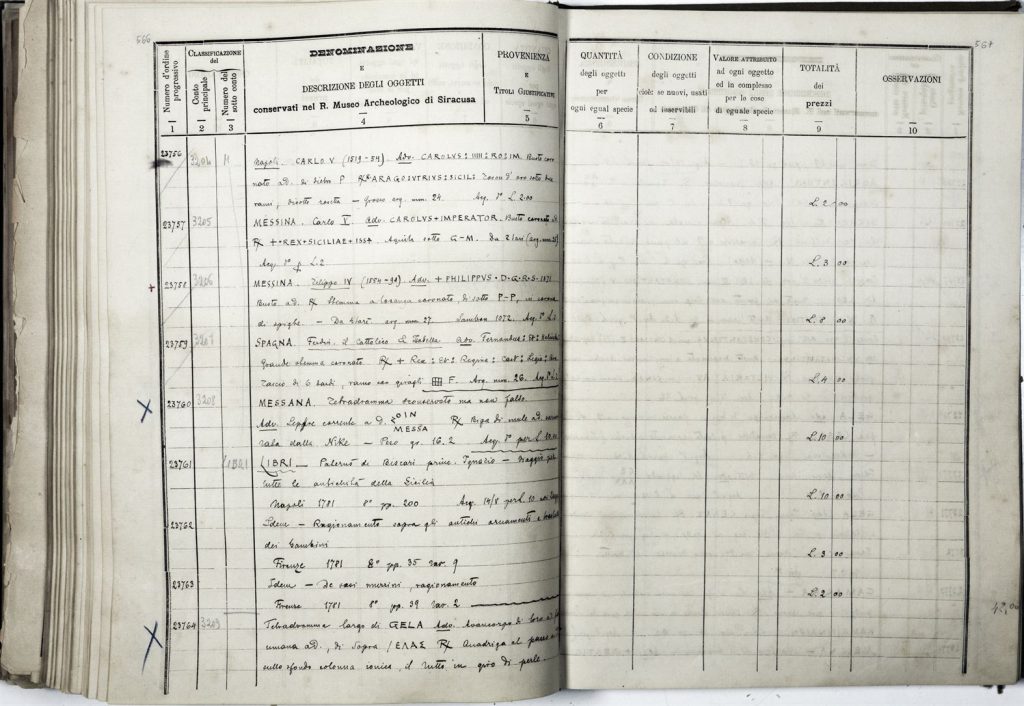 566
Numero d'ordine progressivo
CLASSIFICAZIONE del
Conto principale
Numero del sotto conto
DENOMINAZIONE
E
DESCRIZIONE DEGLI OGGETTI
conservati nel R. Museo Archeologico di Siracusa
PROVENIENZA
E
TITOLI GIUSTIFICATIVI
1 2 3 4 5
23756 3204 M Napoli. CARLO V (1519-54) Adv. CAROLVS : IIIII : RO : IM. Busto coro
nato ad. di dietro P R/ ARAGO : VTRIVS : SICIL :
rami, di sotto rosetta - Grosso arg. mm. 24. Acq. 1° L. 2.00
23757 3205 MESSINA. Carlo V. Adv. CAROLVS + IMPERATOR. Busto coronato
R/ + REX + SICILIAE + 1554. Aquila sotto G-M. Da 2 tarì
Acq. 1° L. 2
23758 3206 MESSINA. Filippo IV Adv. + PHILIPPVS · D · G · R · S ·
Busto ad. R/ Stemma a losanga coronato, di sotto P-P, in corona
di spighe. - Da arg. mm 27 Sambon 1072. Acq.
23759 3207 SPAGNA. Ferdin. il Cattolico e Isabella Adv. Fernandus : Et :
Grande stemma coronato R/ + Rex : Et : Regina : Cast : Legio :
F. Arg. mm. 26. Acq.
23760 3208 MESSANA. Tetradramma sconservato ma non falso.
Adv. Lepre corrente a D. OIN
MESSA R/ Biga di mule ad.
rata dalla Nike - Peso gr. 16.2 Acq. 1° per L. 10.00
23761 LIBRI LIBRI - Paternò di Biscari princ. Ignazio - Viaggio per
tutte le antichità della Sicilia
Napoli 1781 8° pp. 200 Acq. 14/8 per L. 10
23762 Idem - Ragionamento sopra gli antichi ornamenti e
dei bambini
Firenze 1781 8° pp. 35 tav. 9
23763 Idem - De vasi murrini, ragionamento
Firenze 1781 8° pp. 39 tav. 2
23764 3209 Tetradramma largo di GELA Adv. Avancorpo di toro a
umana ad., di sopra / ΕΛΑΣ R/ Quadriga al passo
sullo sfondo colonna ionica, il tutto in giro di perle
567
QUANTITÀ
degli oggetti
per
ogni egual specie
CONDIZIONE
degli oggetti
cioè: se nuovi, usati
od inservibili
VALORE ATTRIBUITO
ad ogni oggetto
ed in complesso
per le cose
di eguale specie
TOTALITÀ
dei
prezzi
OSSERVAZIONI
6 7 8 9 10
L. 2 00
L. 3 00
L. 8 00
L. 4 00
L. 10 00
L. 10 00
L. 3 00
L. 2 00
42,00